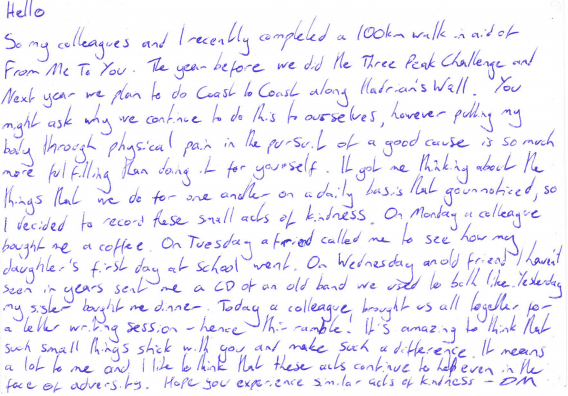 Hello
So my colleagues and I recently completed a 100km walk in aid of
From Me To You. The year before we did the Three Peak Challenge and
Next year we plan to do Coast to Coast along Hadrian's Wall. You
might ask why we continue to do this to ourselves, however putting my
body through physical pain in the pursuit of a good cause is so much
more fulfilling than doing it for yourself. It got me thinking about the
things that we do for one another on a daily basis that go unnoticed, so
I decided to record these small acts of kindness. On Monday a colleague
bought me a coffee. On Tuesday a friend called me to see how my
daughter's first day at school went. On Wednesday an old friend I haven't
seen in years sent me a CD of an old band we used to both like. Yesterday
my sister bought me dinner. Today a colleague brought us all together for
a letter writing session - hence this ramble. It's amazing to think that
such small things stick with you and make such a difference. It means
a lot to me and I like to think that these acts continue to help even in the
face of adversity. Hope you experience similar acts of kindness - DM